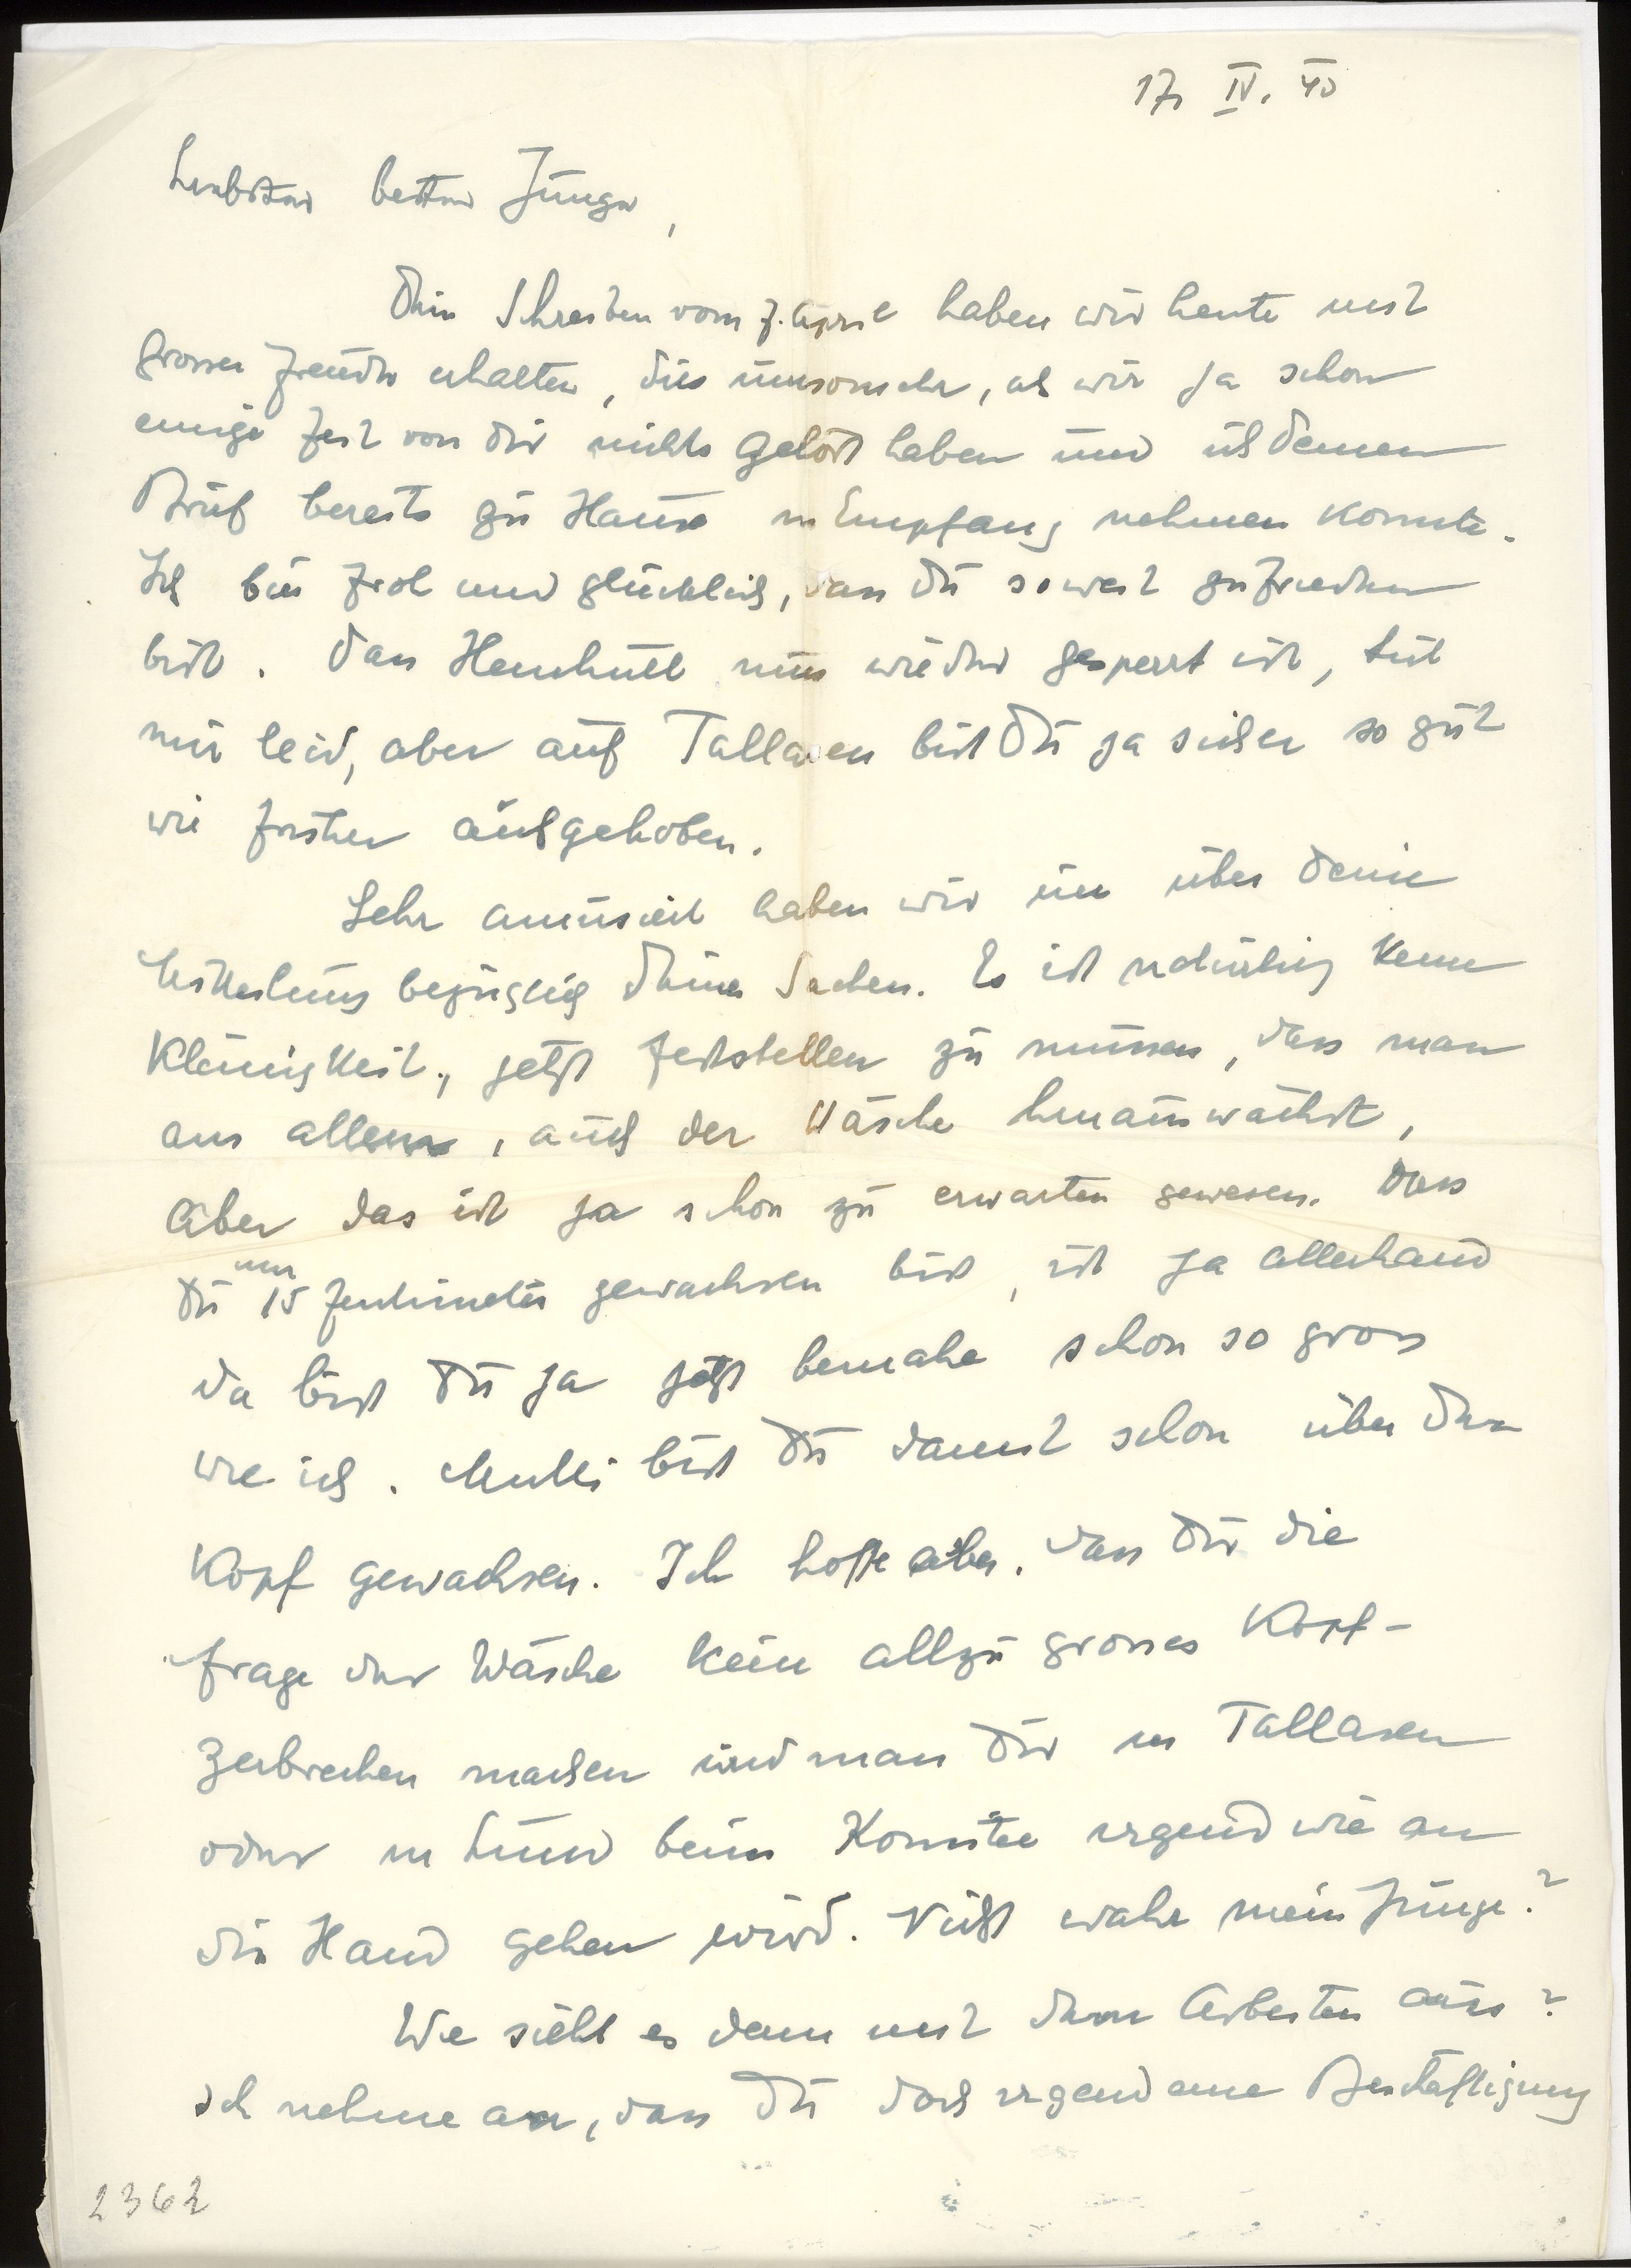 17. IV. 40
Liebster bester Junge,
Dein Schreiben vom 7. April haben wir heute mit
grosser Freude erhalten, dies umsomehr, als wir ja schon
einige Zeit von Dir nichts gehört haben und ich deinen
Brief bereits zu Hause in Empfang nehmen konnte.
Ich bin froh und glücklich, dass Du soweit zufrieden
bist. Dass Hemhult nun wieder gesperrt ist, tut
mir leid, aber auf Tallåsen bist Du ja sicher so gut
wie früher aufgehoben.
Sehr amüsiert haben wir uns über deine
Mitteilung bezüglich Deiner Sachen. Es ist natürlich keine
Kleinigkeit, jetzt feststellen zu müssen, dass man
aus allem, auch der Wäsche herauswächst,
aber das ist ja schon zu erwarten gewesen. Dass
Du um 15 Zentimeter gewachsen bist, ist ja allerhand
da bist Du ja jetzt beinahe schon so gross
wie ich. Mutti bist Du damit schon über den
Kopf gewachsen. Ich hoffe aber, dass Dir die
Frage der Wäsche kein allzu grosses Kopf-
zerbrechen machen und man Dir in Tallåsen
oder in Lund beim Komitee irgendwie an
die Hand gehen wird. Nicht wahr mein Junge?
Wie sieht es denn mit dem Arbeiten aus?
Ich nehme an, dass Du doch irgendeine Beschäftigung
2362